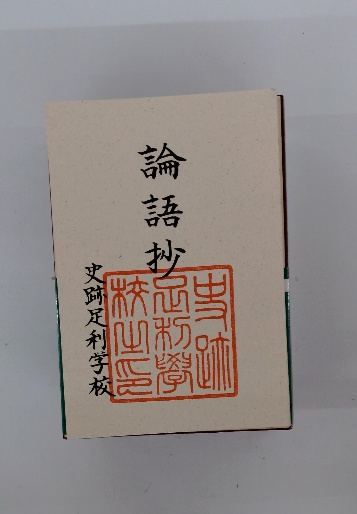 論語抄
史跡足利学校
史跡
足利學
校之印